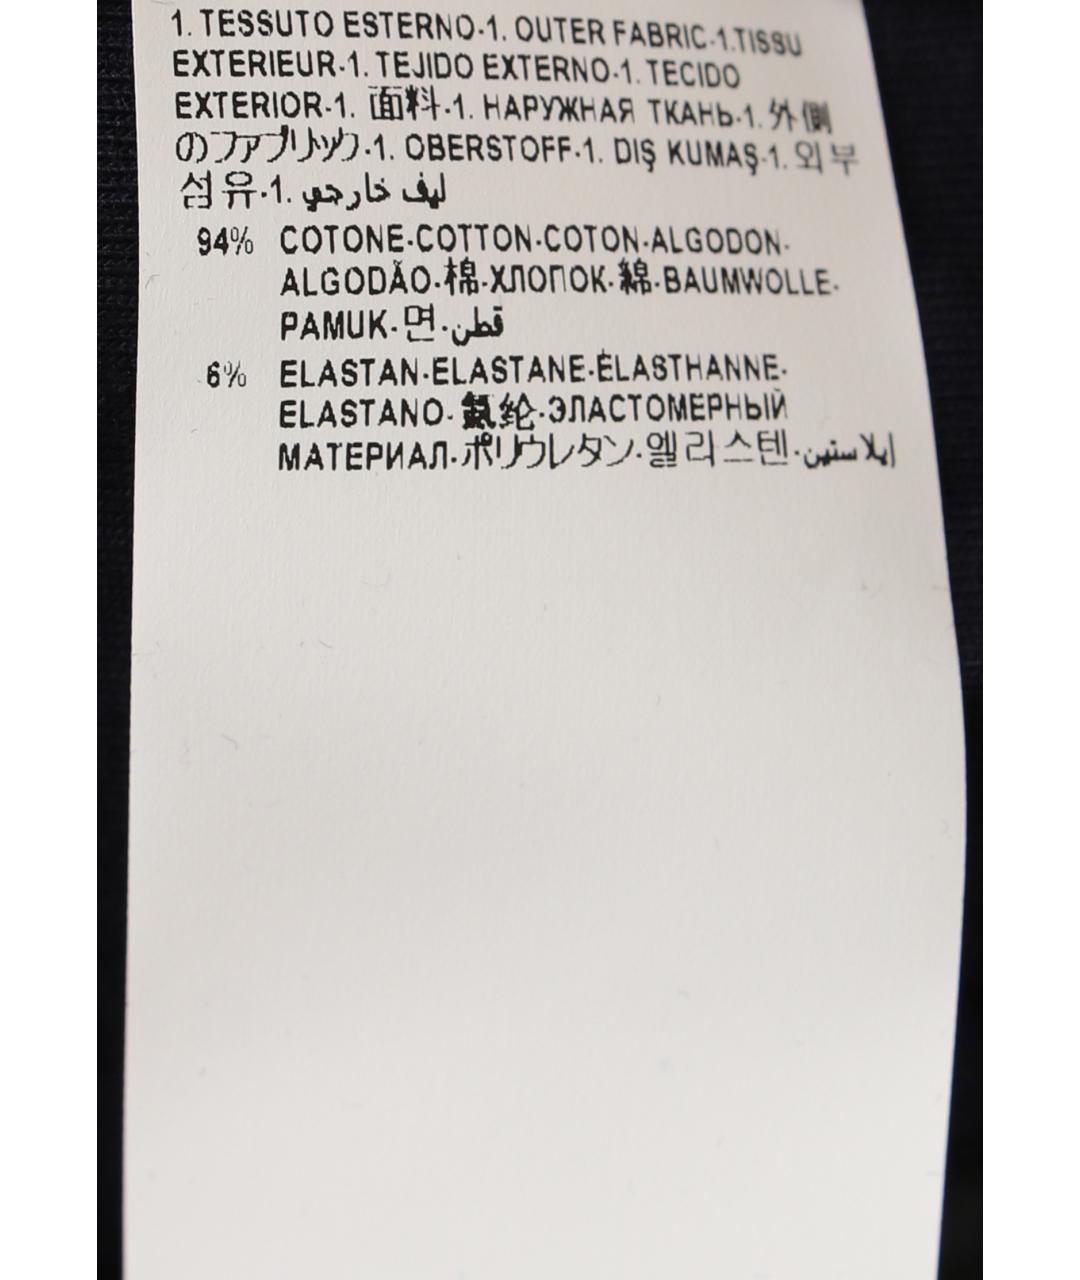 1. TESSUTO ESTERNO·1. OUTER FABRIC·1.TISSU
EXTERIEUR·1. TEJIDO EXTERNO·1. TECIDO
EXTERIOR·1. 面料·1. НАРУЖНАЯ ТКАНЬ·1. 外側
のファブリック·1. OBERSTOFF·1. DIŞ KUMAŞ·1. 외부
섬유·1. ليف خارجي
94% COTONE·COTTON·COTON·ALGODON·
ALGODÃO·棉·ХЛОПОК·綿·BAUMWOLLE·
PAMUK·면·قطن
6% ELASTAN·ELASTANE·ÉLASTHANNE·
ELASTANO·氨纶·ЭЛАСТОМЕРНЫЙ
МАТЕРИАЛ·ポリウレタン·엘리스텐·إيلاستين